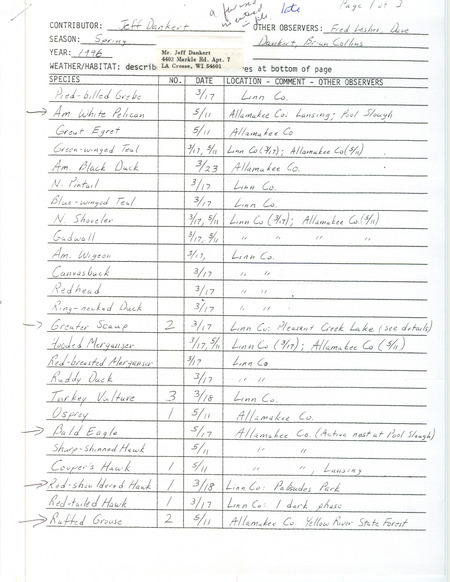 a few were late Page 1 of 2
CONTRIBUTOR: Jeff Dankert OTHER OBSERVERS: Fred Lesher, Dave
SEASON: Spring Dankert, Brian Collins
YEAR: 1996
Mr. Jeff Dankert
4403 Markle Rd. Apt. 7
LA Crosse, WI 54601
WEATHER/HABITAT: describ es at bottom of page
SPECIES NO. DATE LOCATION - COMMENT - OTHER OBSERVERS
Pied-billed Grebe 3/17 Linn Co.
Am White Pelican 5/11 Allamakee Co: Lansing; Pool Slough
Great Egret 5/11 Allamakee Co
Green-winged Teal 3/17, 5/11 Linn Co (3/17); Allamakee Co (5/11)
Am. Black Duck 3/23 Allamakee Co.
N. Pintail 3/17 Linn Co.
Blue-winged Teal 3/17 Linn Co.
N. Shoveler 3/17, 5/11 Linn Co (3/17); Allamakee Co. (5/11)
Gadwall 3/17, 5/11 " " " "
Am. Wigeon 3/17, Linn Co.
Canvasback 3/17 " "
Redhead 3/17 " "
Ring-necked Duck 3/17 " "
Greater Scaup 2 3/17 Linn Co: Pleasant Creek Lake (see details)
Hooded Merganser 3/17, 5/11 Linn Co (3/17); Allamakee Co (5/11)
Red-breasted Merganser 3/17 Linn Co
Ruddy Duck 3/17 " "
Turkey Vulture 3 3/18 Linn Co.
Osprey 1 5/11 Allamakee Co.
Bald Eagle 5/17 Allamakee Co. (Active nest at Pool Slough)
Sharp-shinned Hawk 5/11 " "
Cooper's Hawk 1 5/11 " ", Lansing
Red-shouldered Hawk 1 3/18 Linn Co: Palisades Park
Red-tailed Hawk 1 3/17 Linn Co: 1 dark phase
Ruffed Grouse 2 5/11 Allamakee Co Yellow River State Forest